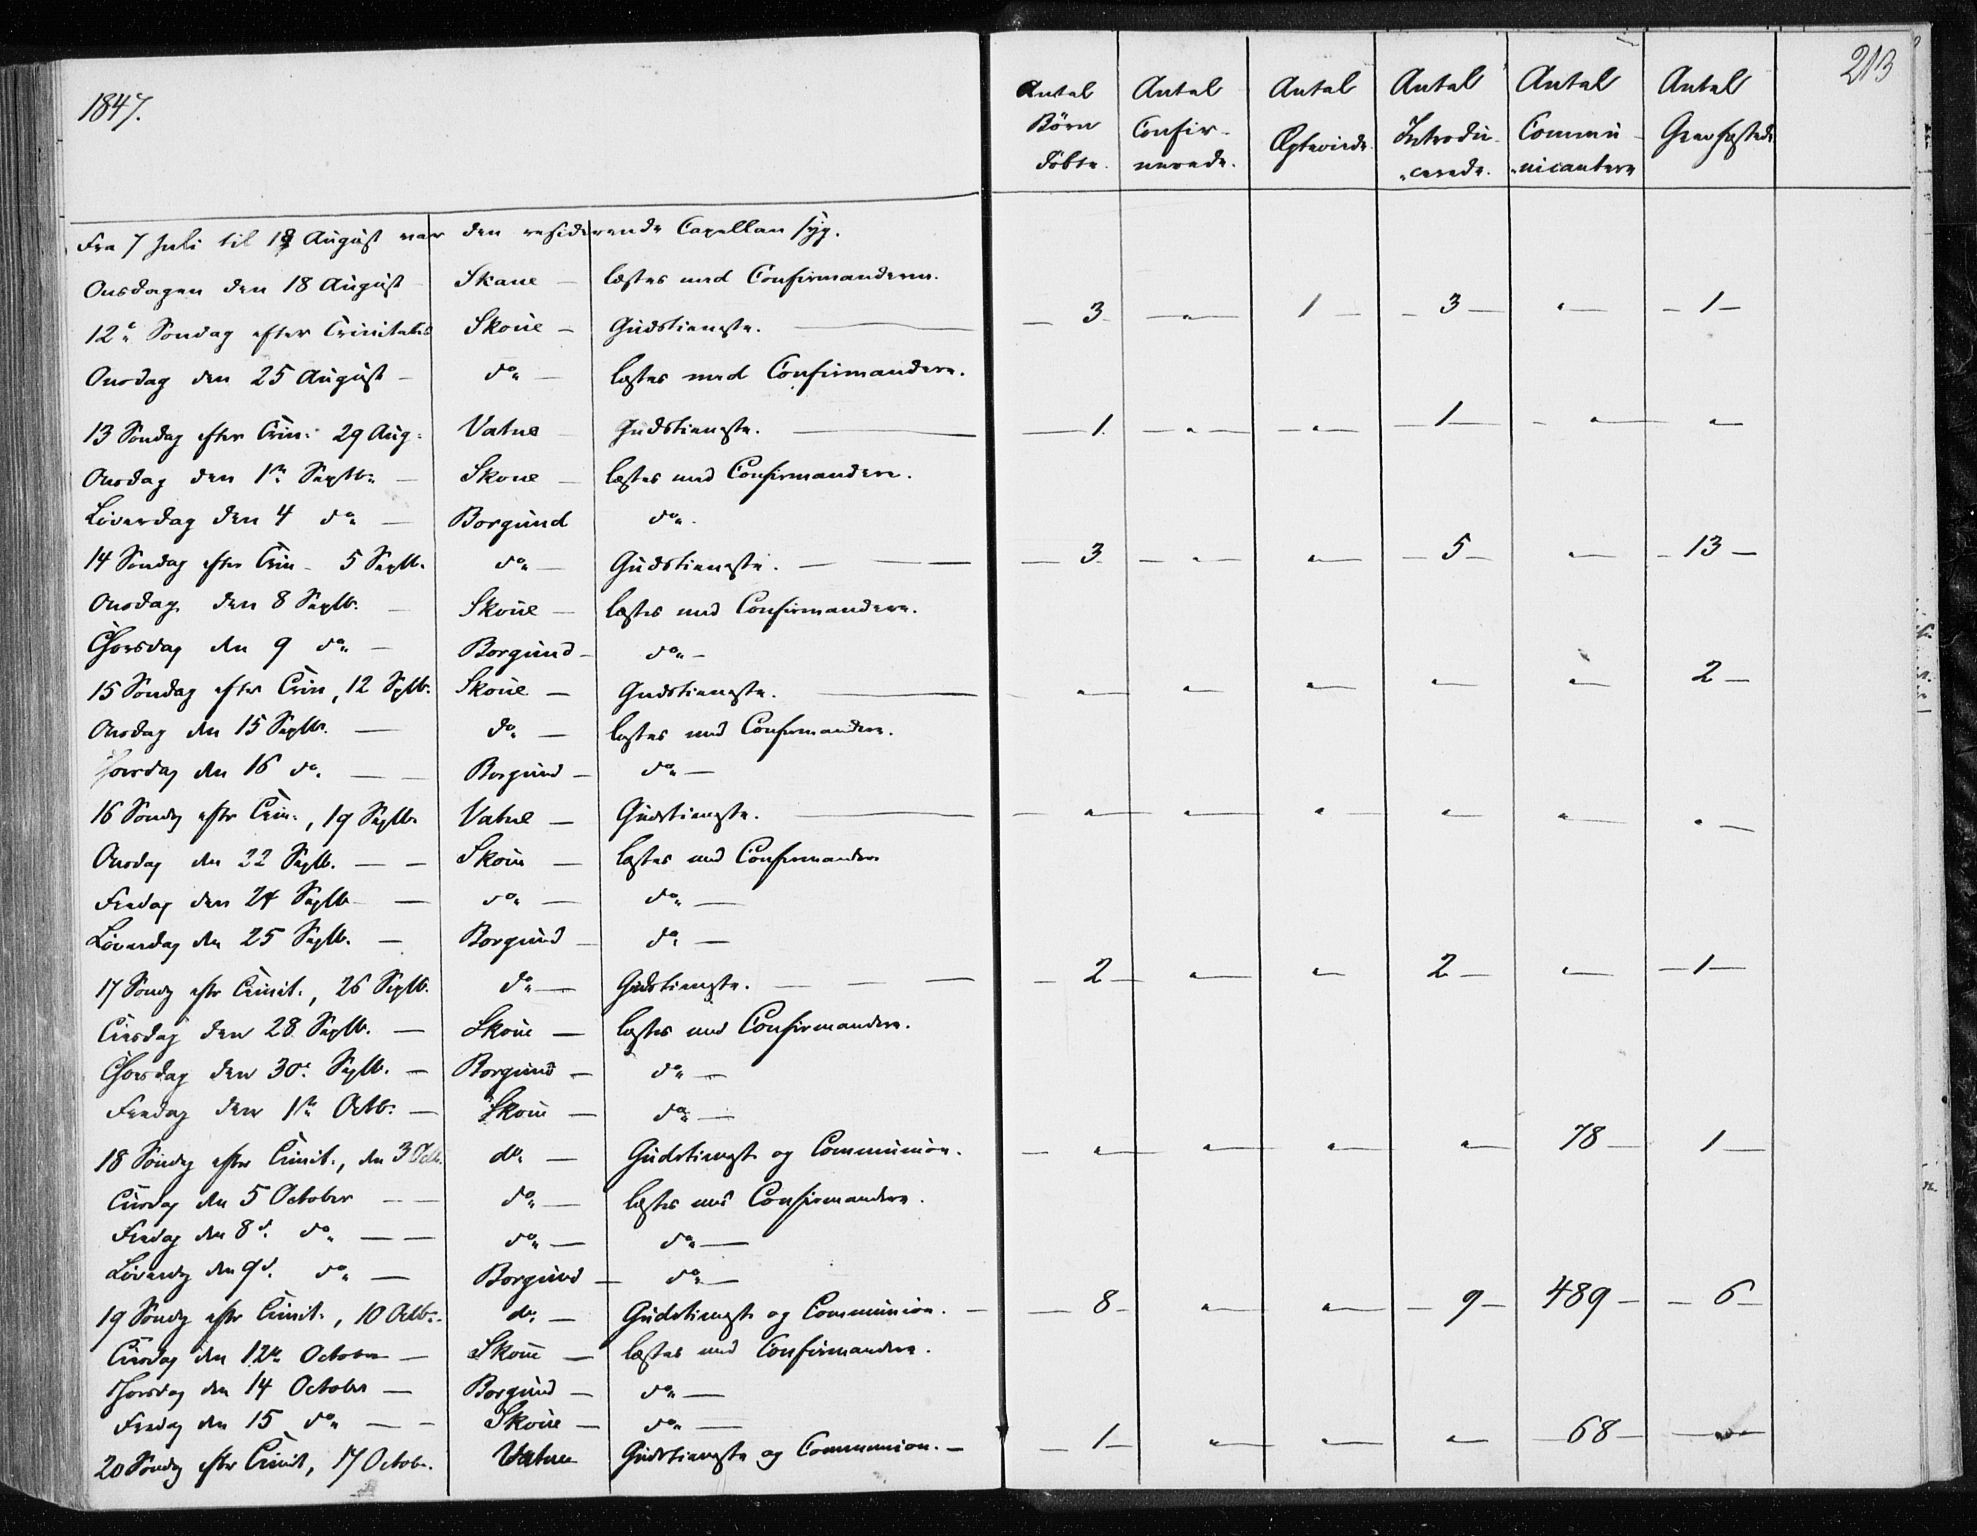 213
1847.
Antal Børn døbte. | Antal Confir- merede. | Antal Ægteviede. | Antal Introdu- „cerede. | Antal Commu- „nicantere | Antal Gravfæstede
Fra 7 Juli til 18 August var den residerende Capellan syg.
Onsdagen den 18 August Skoue — læstes med Confirmanderne.
12te Søndag efter Trinitatis Skoue — Gudstieneste. — 3 — „ — 1 — 3 — „ — 1 —
Onsdag den 25 August — do — læstes med Confirmandere.
13 Søndag efter Trin: 29 Aug: Vatne — Gudstieneste. — 1 — „ — „ — 1 — „ — „
Onsdag den 1ste Septbr — Skoue — læstes med Confirmandere.
Løverdag den 4 do — Borgund do.
14 Søndag efter Trin — 5 Septb. do — Gudstieneste. — 3 — „ — „ — 5 — „ — 13 —
Onsdag den 8 Septb. — Skoue — læstes med Confirmandere.
Thorsdag den 9 do — Borgund — do —
15 Søndag efter Trin, 12 Sptb. Skoue — Gudstieneste. — „ — „ — „ — „ — „ — 2 —
Onsdag den 15 Septb. — do — læstes med Confirmandere.
Thorsdag den 16 do. — — Borgund — do —
16 Søndag eftr Trin:, 19 Septb. Vatne — Gudstieneste. — „ — „ — „ — „ — „ — „ —
Onsdag den 22 Septb. — — Skoue — læstes med Confirmandere
Fredag den 24 Septb — — do — do —
Løverdag den 25 Septb. — Borgund — do —
17 Søndag eftr Trinit., 26 Septb. do — Gudstieneste. — 2 — „ — „ — 2 — „ — 1 —
Tirsdag den 28 Septb. — Skoue — læstes med Confirmandere.
Thorsdag den 30te Septb. — Borgund — do —
Fredag den 1ste Octb: — Skoue — do —
18 Søndag efter Trinit., den 3 Octb. do. — Gudstieneste og Communion. — „ — „ — „ — „ — 78 — 1 —
Tirsdag den 5 October — — do — læstes med Confirmandere.
Fredag den 8de do — — do — do —
Løverdag den 9de do — Borgund — do —
19 Søndag eftr Trinit., 10 Octbr. do. — Gudstieneste og Communion. — 8 — „ — „ — 9 — 489 — 6 —
Tirsdag den 12te October — Skoue — læstes med Confirmandere.
Thorsdag den 14 October — Borgund — do —
Fredag den 15 do — — Skoue — do —
20 Søndag eftr Trinit, 17 Octobr. Vatne Gudstieneste og Communion. — 1 — „ — „ — „ — 68 — „ —